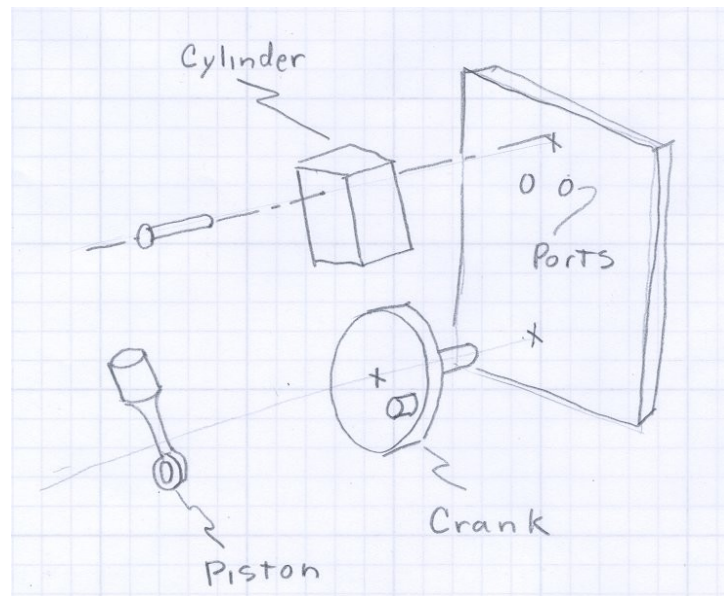 Cylinder
Ports
Crank
Piston